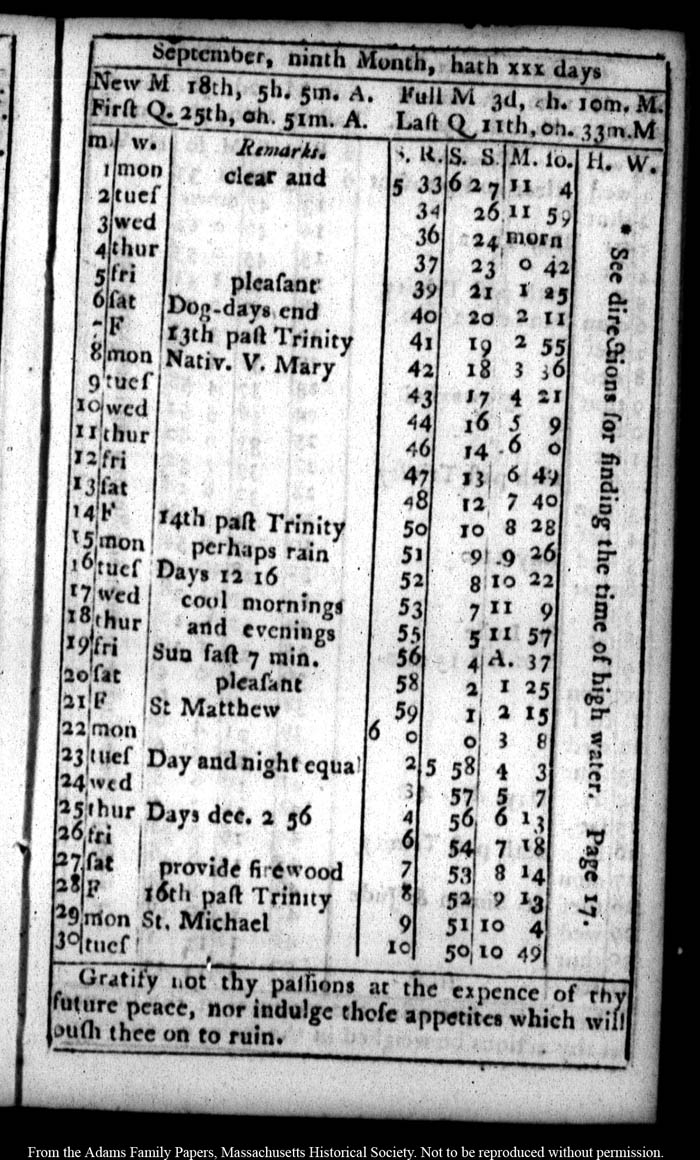 September, ninth Month, hath xxx days
New M 18th, 5h. 5m. A. Full M 3d, h. 10m. M.
Firſt Q. 25th, oh. 51m. A. Laſt Q 11th, oh. 33m.M
m. w. Remarks. S. R. S. S. M. ſo. H. W.
1 mon clear and 5 33 6 27 11 4
2 tueſ 34 26 11 59
3 wed 36 24 morn
4 thur 37 23 0 42
5 fri pleaſant 39 21 1 25
6 ſat Dog-days end 40 20 2 11
7 F 13th paſt Trinity 41 19 2 55
8 mon Nativ. V. Mary 42 18 3 36
9 tueſ 43 17 4 21
10 wed 44 16 5 9
11 thur 46 14 6 0
12 fri 47 13 6 49
13 ſat 48 12 7 40
14 F 14th paſt Trinity 50 10 8 28
15 mon perhaps rain 51 9 9 26
16 tueſ Days 12 16 52 8 10 22
17 wed cool mornings 53 7 11 9
18 thur and evenings 55 5 11 57
19 fri Sun faſt 7 min. 56 4 A. 37
20 ſat pleaſant 58 2 1 25
21 F St Matthew 59 1 2 15
22 mon 6 0 0 3 8
23 tueſ Day and night equal 2 5 58 4 3
24 wed 3 57 5 7
25 thur Days dec. 2 56 4 56 6 13
26 fri 6 54 7 18
27 ſat provide firewood 7 53 8 14
28 F 16th paſt Trinity 8 52 9 13
29 mon St. Michael 9 51 10 4
30 tueſ 10 50 10 49
* See directions for finding the time of high water. Page 17.
Gratify not thy paſſions at the expence of thy
future peace, nor indulge thoſe appetites which will
puſh thee on to ruin.
From the Adams Family Papers, Massachusetts Historical Society. Not to be reproduced without permission.